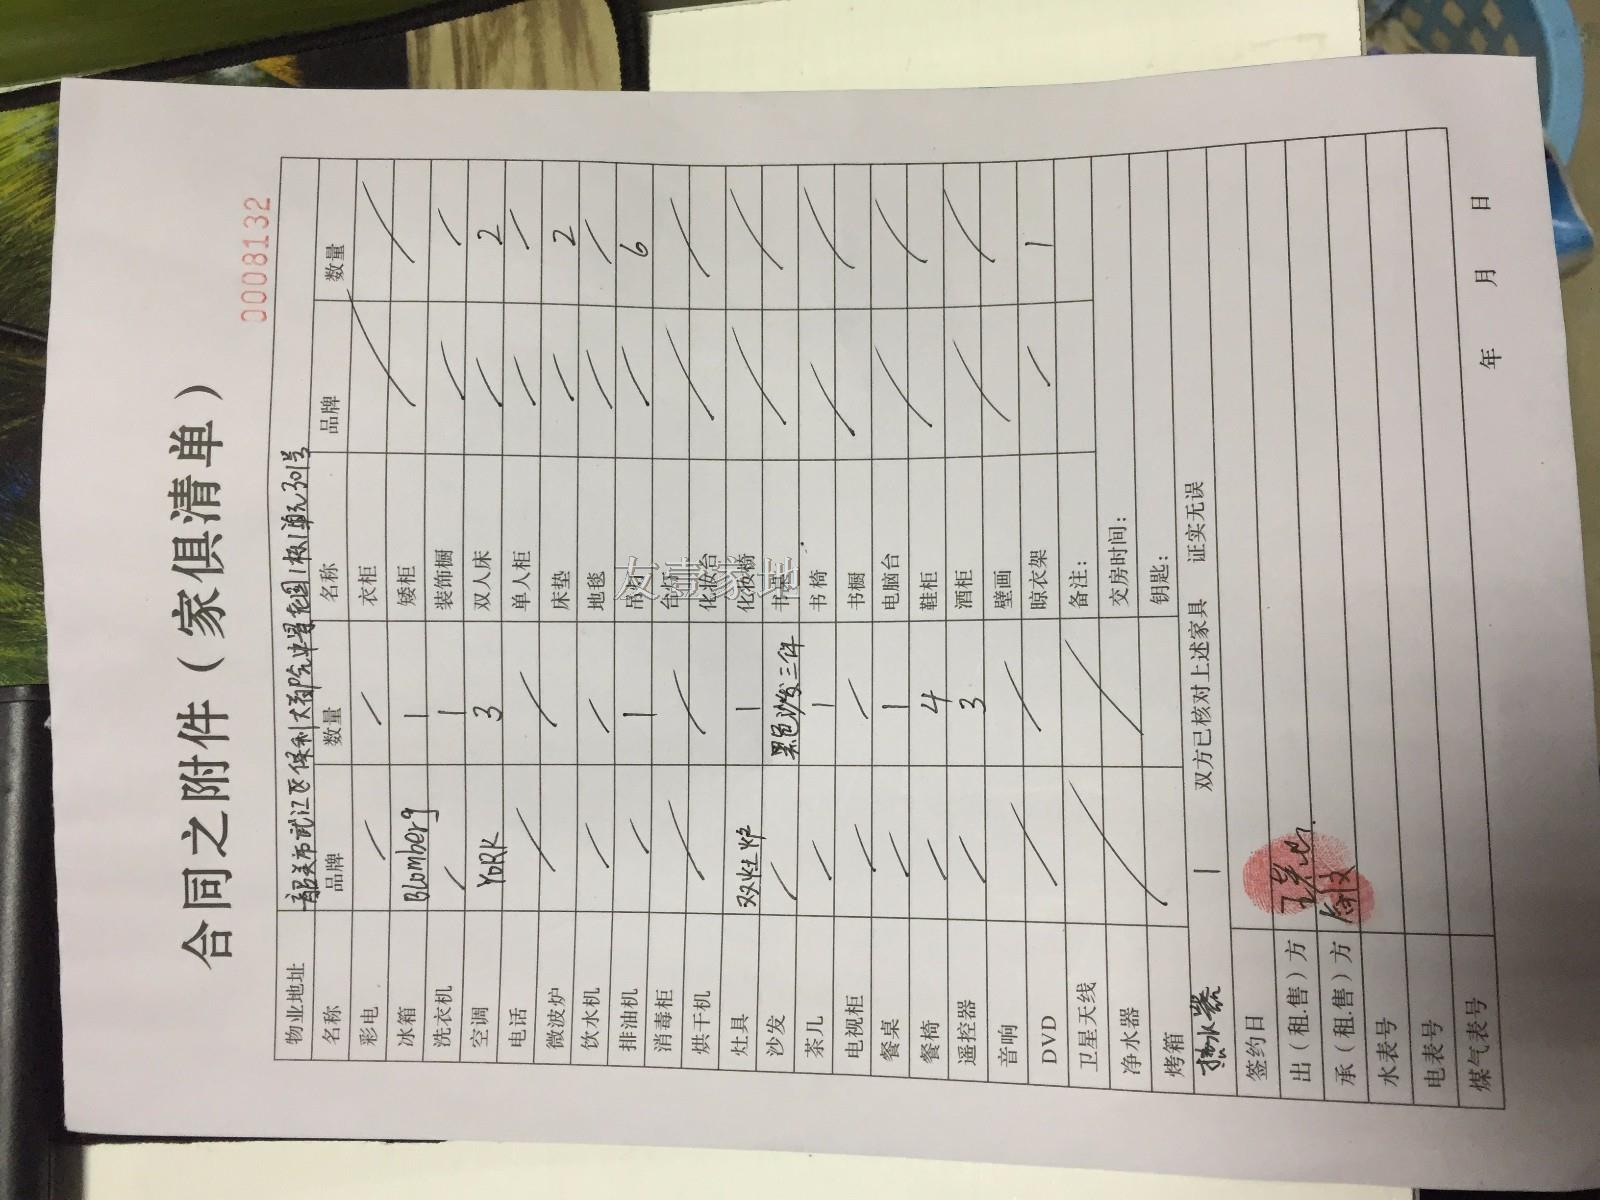 合同之附件（家俱清单）
0008132
物业地址 韶关市武江区保利大都会 花园1栋1单元301号
名称 品牌 数量 名称 品牌 数量
彩电 衣柜
冰箱 Blomberg 1 矮柜
洗衣机 1 装饰橱
空调 YORK 3 双人床 2
电话 单人柜
微波炉 床垫 2
饮水机 地毯
排油机 1 吊灯 6
消毒柜 台灯
烘干机 化妆台
灶具 双灶炉 1 化妆椅
沙发 黑色沙发三件 书桌
茶几 1 书椅
电视柜 书橱
餐桌 1 电脑台
餐椅 4 鞋柜
遥控器 3 酒柜
音响 壁画
DVD 晾衣架 1
卫星天线 备注：
净水器 交房时间：
烤箱 钥匙：
热水器 1 双方已核对上述家具 证实无误
签约日
出（租.售）方
承（租.售）方
水表号
电表号
煤气表号
年 月 日
友喜家地